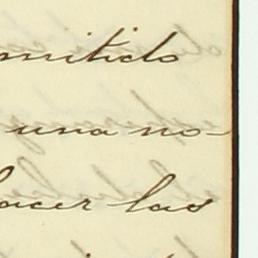 mitido
una no-
hacer las